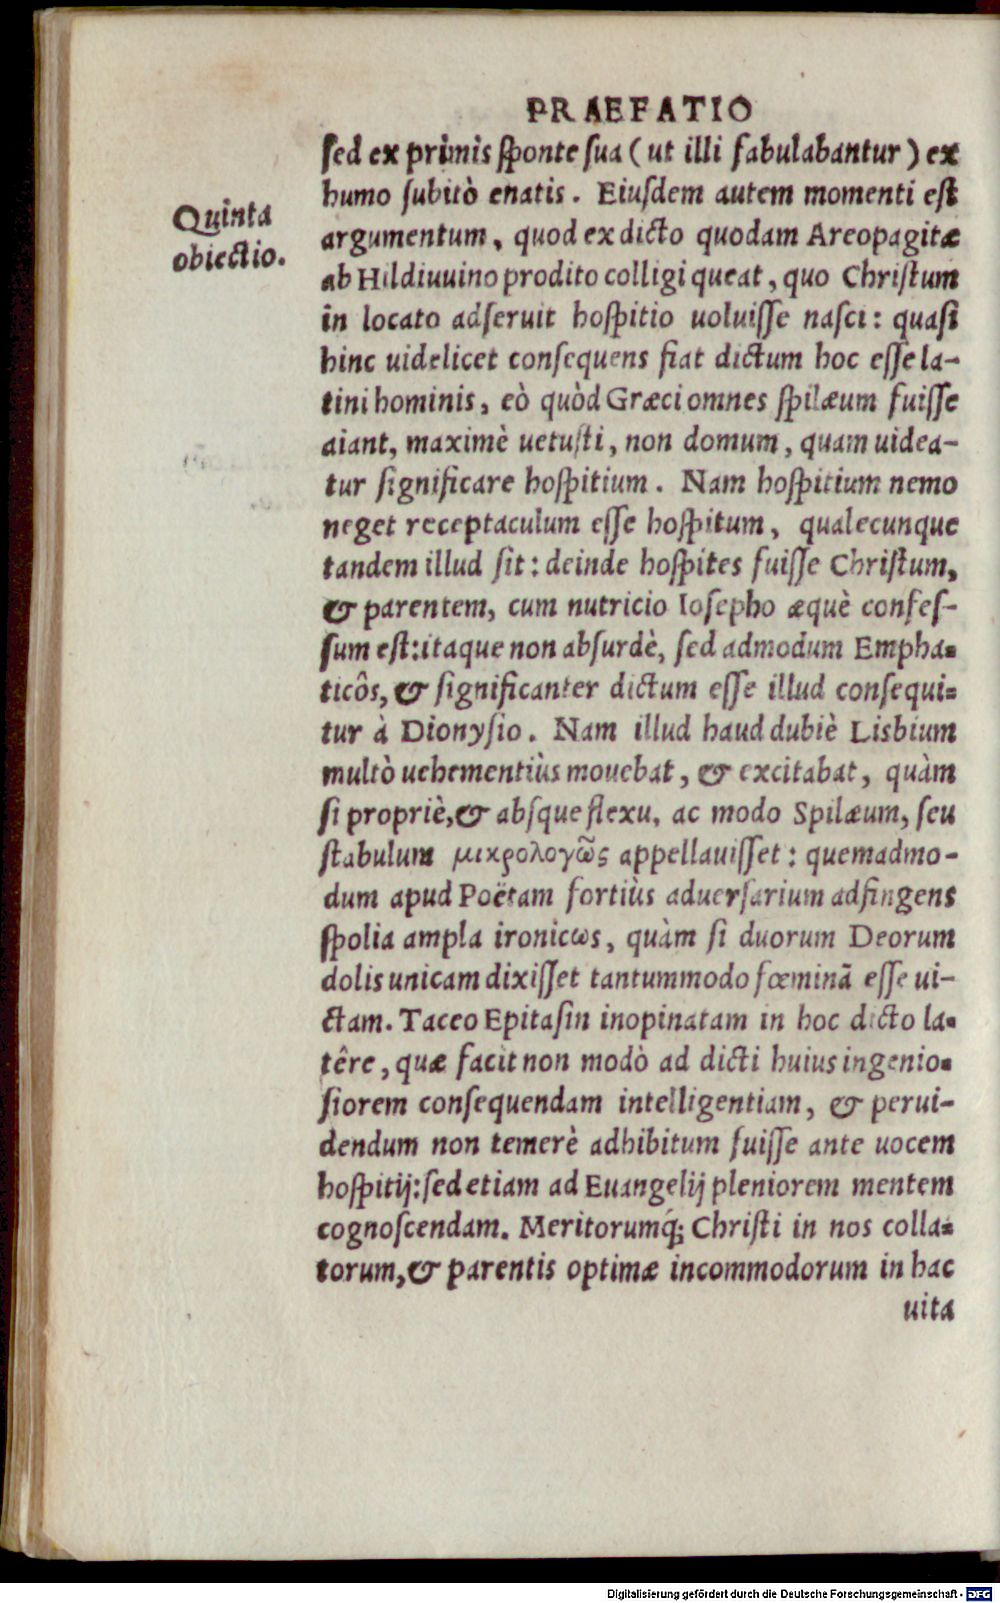 PRAEFATIO
sed ex primis sponte sua (ut illi fabulabantur) ex
humo subitò enatis. Eiusdem autem momenti est
Quinta
obiectio.
argumentum, quod ex dicto quodam Areopagitæ
ab Hildiuuino prodito colligi queat, quo Christum
in locato adseruit hospitio uoluisse nasci: quasi
hinc uidelicet consequens fiat dictum hoc esse la-
tini hominis, eò quòd Græci omnes spilæum fuisse
aiant, maximè uetusti, non domum, quam uidea-
tur significare hospitium. Nam hospitium nemo
neget receptaculum esse hospitum, qualecunque
tandem illud sit: deinde hospites fuisse Christum,
& parentem, cum nutricio Iosepho æquè confes-
sum est: itaque non absurdè, sed admodum Empha-
ticôs, & significanter dictum esse illud consequi-
tur à Dionysio. Nam illud haud dubiè Lisbium
multò uehementiùs mouebat, & excitabat, quàm
si propriè, & absque flexu, ac modo Spilæum, seu
stabulum μικρολογῶς appellauisset: quemadmo-
dum apud Poëtam fortiùs aduersarium adfingens
spolia ampla ironicωs, quàm si duorum Deorum
dolis unicam dixisset tantummodo fœminã esse ui-
ctam. Taceo Epitasin inopinatam in hoc dicto la-
têre, quæ facit non modò ad dicti huius ingenio-
siorem consequendam intelligentiam, & perui-
dendum non temerè adhibitum fuisse ante uocem
hospitij: sed etiam ad Euangelij pleniorem mentem
cognoscendam. Meritorumq́; Christi in nos colla-
torum, & parentis optimæ incommodorum in hac
uita
Digitalisierung gefördert durch die Deutsche Forschungsgemeinschaft - DFG